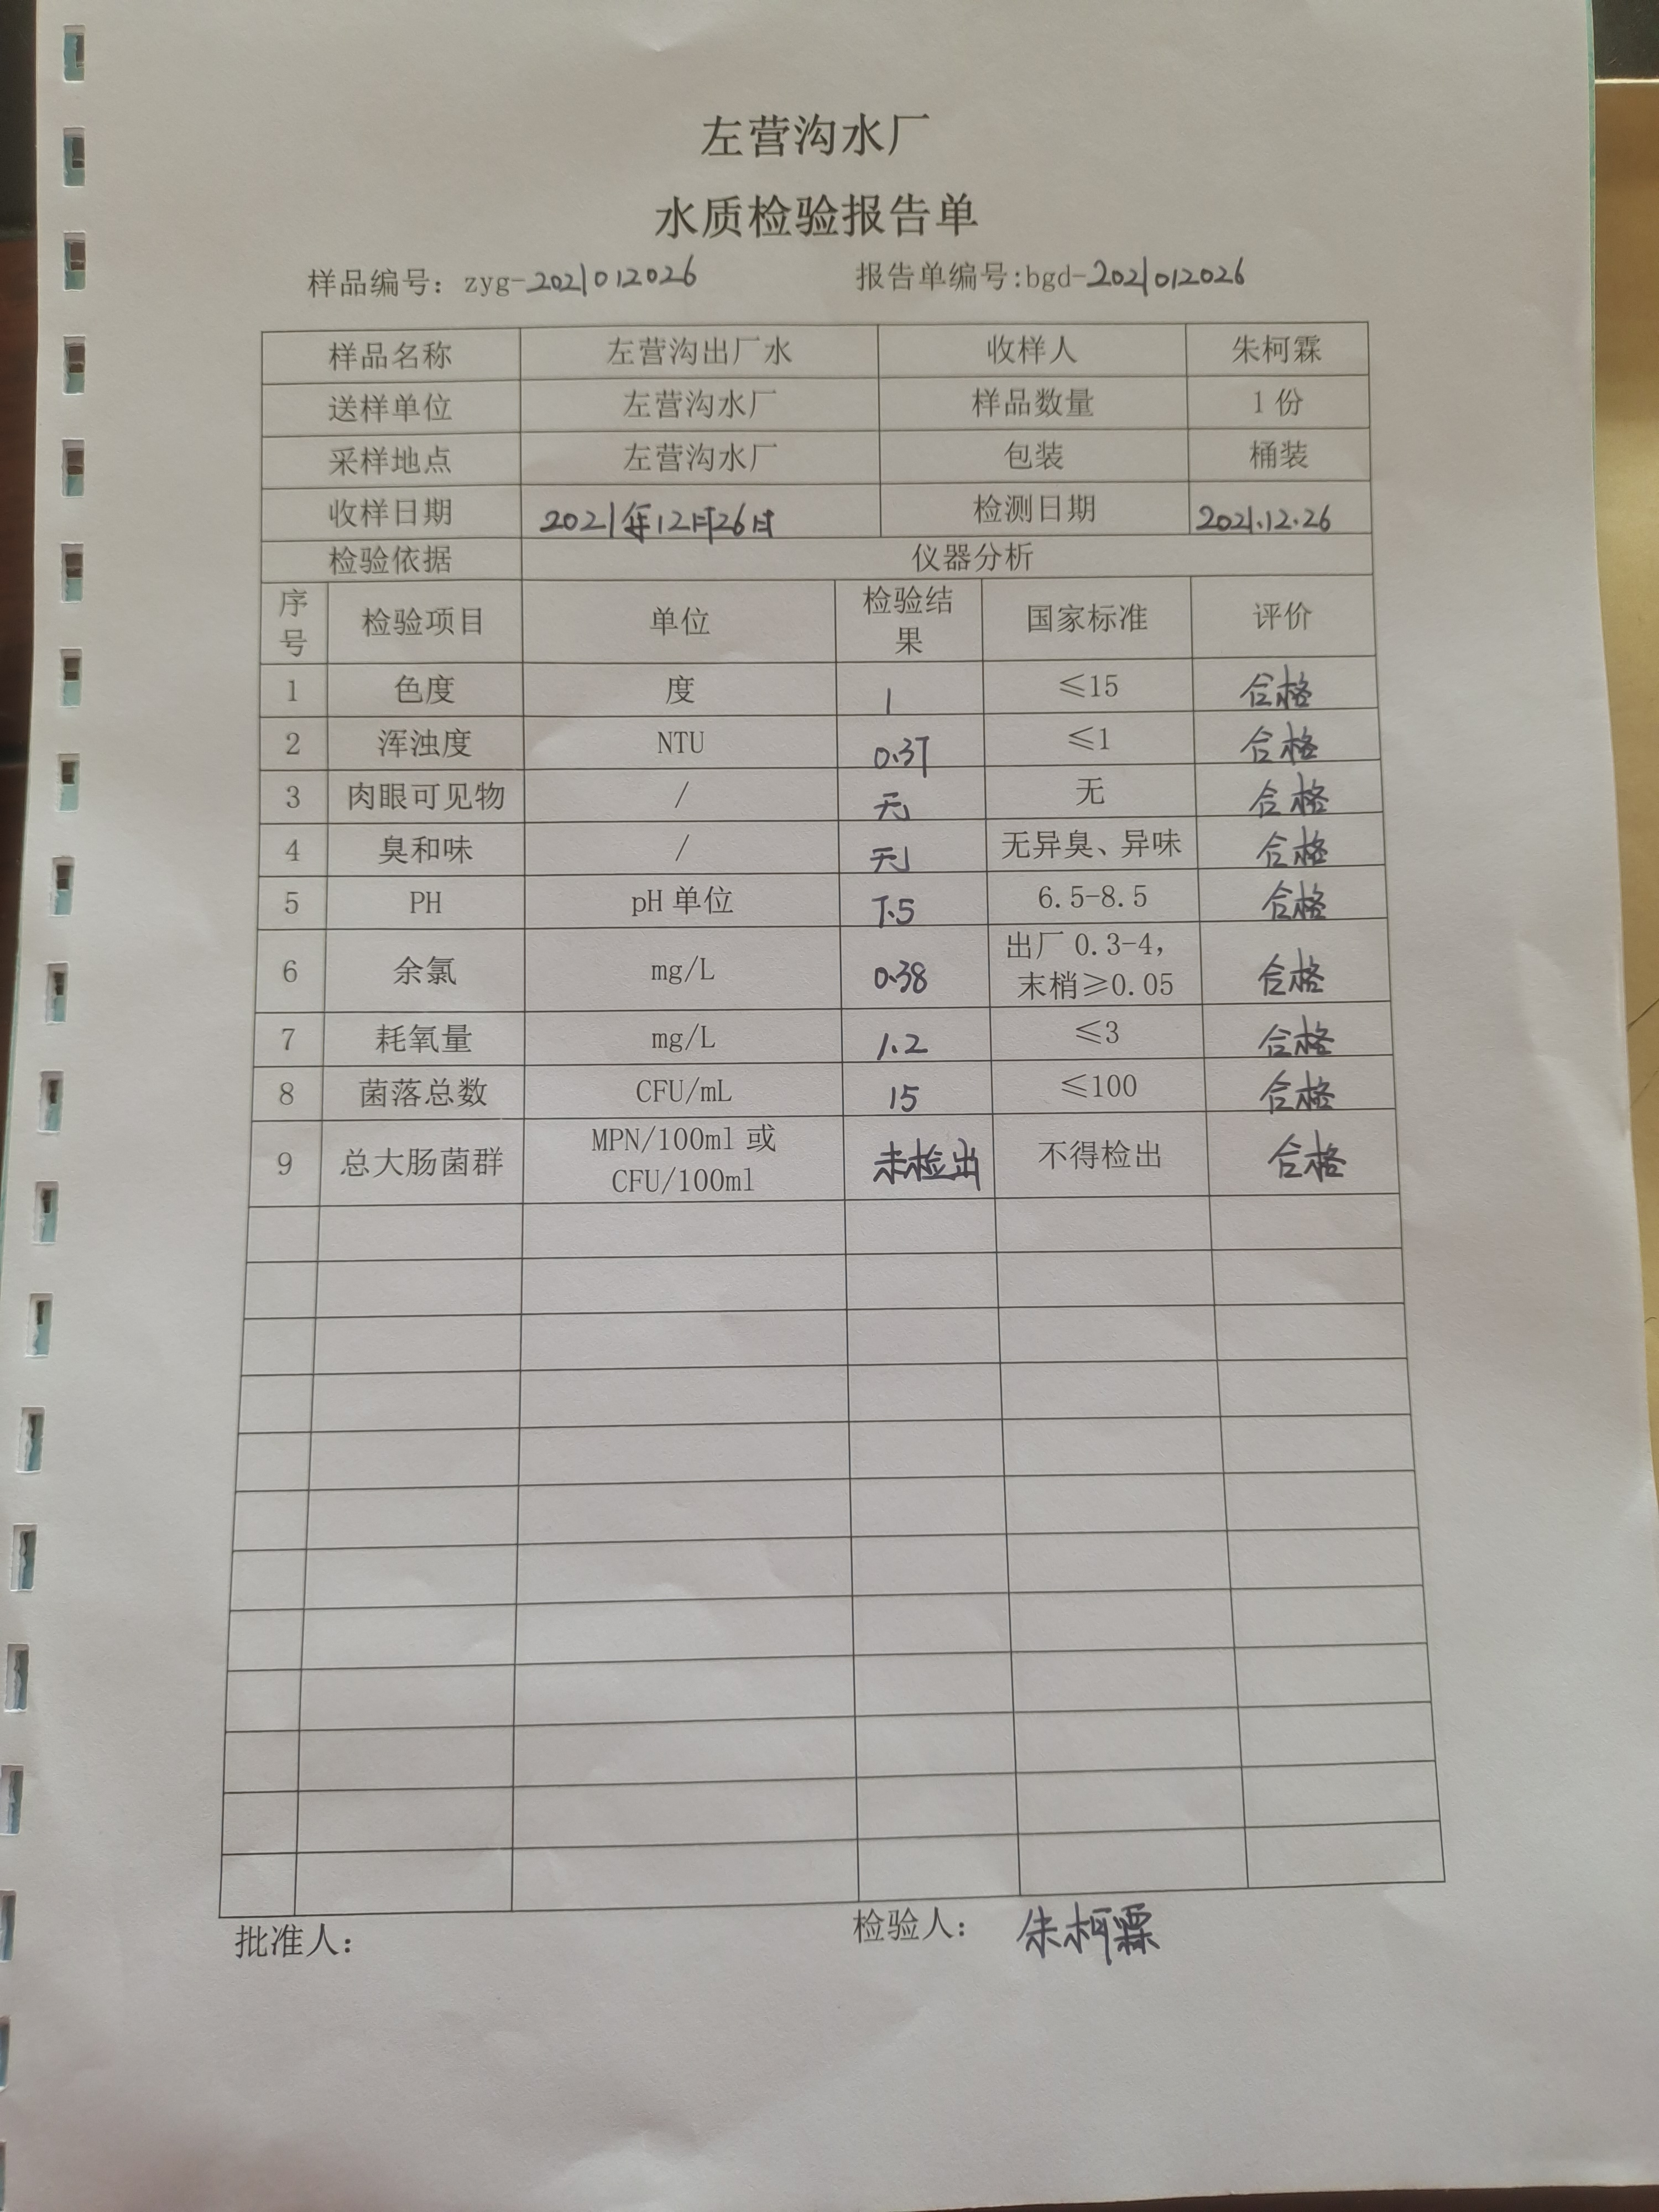 左营沟水厂
水质检验报告单
样品编号：zyg-2021012026 报告单编号:bgd-2021012026
样品名称 左营沟出厂水 收样人 朱柯霖
送样单位 左营沟水厂 样品数量 1份
采样地点 左营沟水厂 包装 桶装
收样日期 2021年12月26日 检测日期 2021.12.26
检验依据 仪器分析
序号 检验项目 单位 检验结果 国家标准 评价
1 色度 度 1 ≤15 合格
2 浑浊度 NTU 0.37 ≤1 合格
3 肉眼可见物 / 无 无 合格
4 臭和味 / 无 无异臭、异味 合格
5 PH pH单位 7.5 6.5-8.5 合格
6 余氯 mg/L 0.38 出厂0.3-4，末梢≥0.05 合格
7 耗氧量 mg/L 1.2 ≤3 合格
8 菌落总数 CFU/mL 15 ≤100 合格
9 总大肠菌群 MPN/100ml或CFU/100ml 未检出 不得检出 合格
批准人： 检验人： 朱柯霖